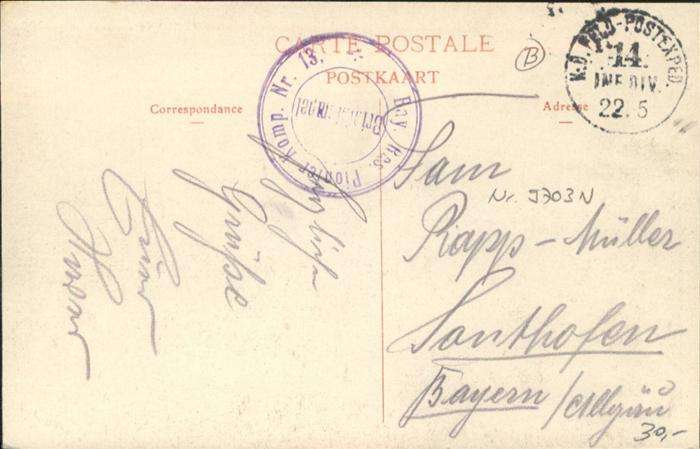 CARTE POSTALE
POSTKAART
Correspondance
Adresse
B
K.D. FELD-POSTEXPED.
14.
INF. DIV.
22. 5
Bay. Res. Pionier Komp. Nr. 13.
Briefstempel
Nr. 9703 N
Rapp-Müller
Sonthofen
Bayern / Allgäu
30,-
Herzliche
Grüße